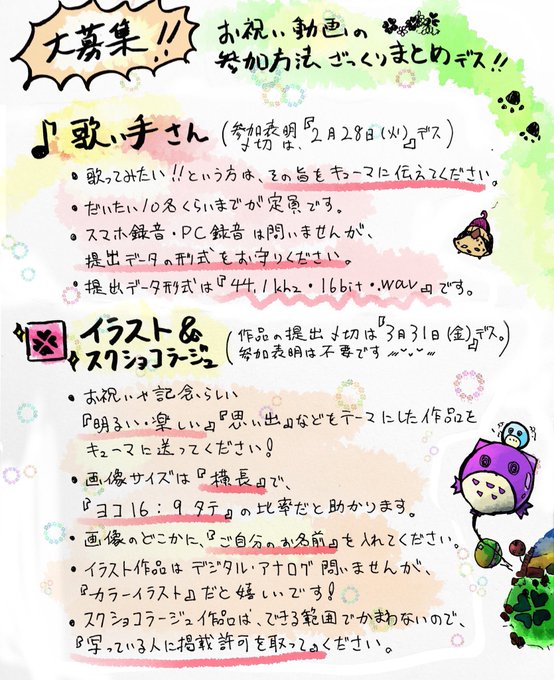 大募集!!
お祝い動画の
参加方法 ざっくりまとめデス!!
♪歌い手さん(参加表明〆切は、『2月28日(火)』デス)
・歌ってみたい!!という方は、その旨をキューマに伝えてください。
・だいたい10名くらいまでが定員です。
・スマホ録音・PC録音は問いませんが、
提出データの形式をお守りください。
・提出データ形式は『44.1khz・16bit・.wav』です。
イラスト&スクショコラージュ(作品の提出〆切は『3月31日(金)』デス。
参加表明は不要です)
・お祝いや記念らしい
『明るい・楽しい』『思い出』などをテーマにした作品を
キューマに送ってください!
・画像サイズは『横長』で、
『ヨコ16:9タテ』の比率だと助かります。
・画像のどこかに、『ご自分のお名前』を入れてください。
・イラスト作品はデジタル・アナログ問いませんが、
『カラーイラスト』だと嬉しいです!
・スクショコラージュ作品は、できる範囲でかまわないので、
『写っている人に掲載許可を取って』ください。